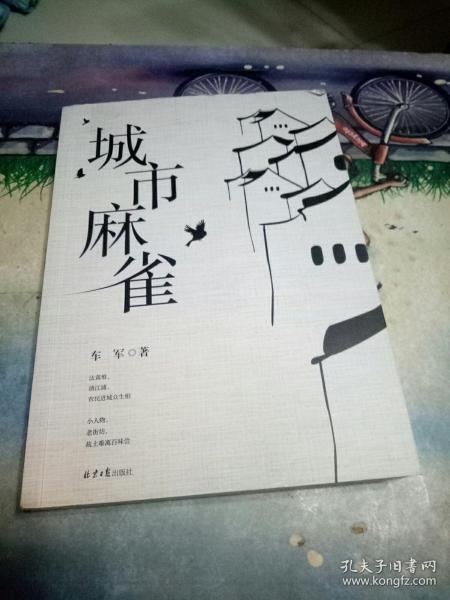 城市麻雀
车 军◎著
清江浦,
农民进城众生相
小人物,
老街坊,
故土难离百味尝
北京日报出版社
孔夫子旧书网
www.kongfz.com